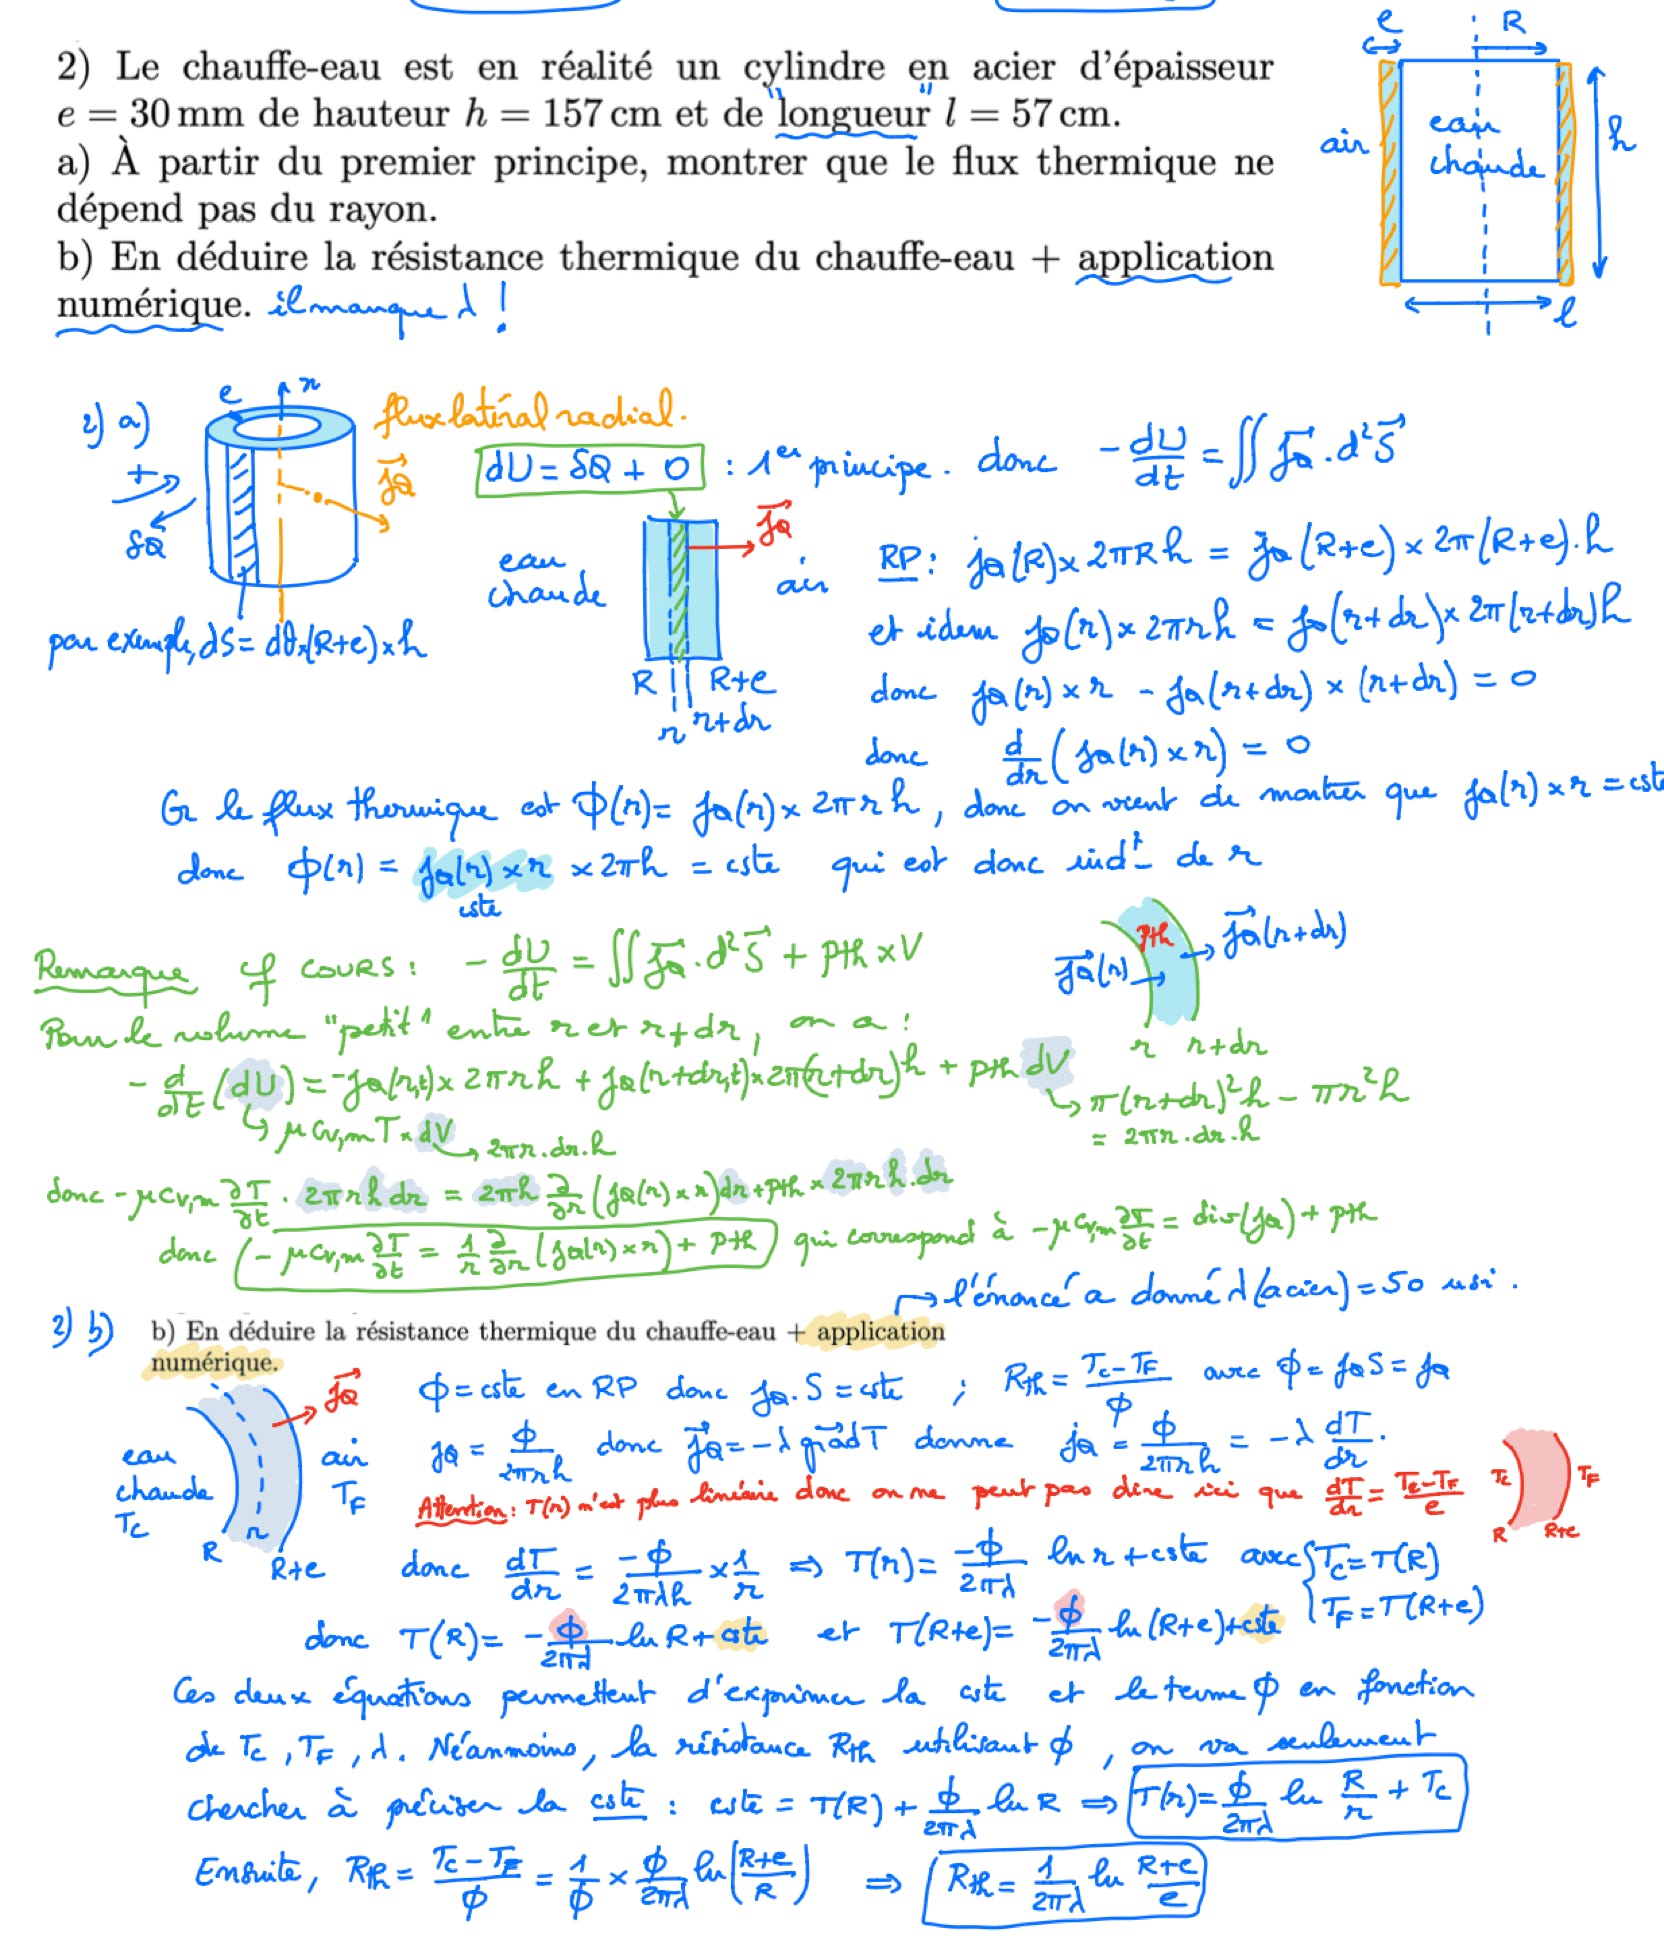 2) Le chauffe-eau est en réalité un cylindre en acier d'épaisseur
e = 30 mm de hauteur h = 157 cm et de "longueur" l = 57 cm.
a) À partir du premier principe, montrer que le flux thermique ne
dépend pas du rayon.
b) En déduire la résistance thermique du chauffe-eau + application
numérique. il manque λ !
e
R
air
eau
chaude
h
l
2) a)
e
r
flux latéral radial.
+
δQ
j⃗Q
dU = δQ + 0 : 1er principe. donc -dU/dt = ∬ j⃗Q . d²S⃗
par exemple, dS = dθ x (R+e) x h
eau
chaude
j⃗Q
air
R
R+e
r
r+dr
RP : jQ(R) x 2πRh = jQ(R+e) x 2π(R+e).h
et idem jQ(r) x 2πrh = jQ(r+dr) x 2π(r+dr)h
donc jQ(r) x r - jQ(r+dr) x (r+dr) = 0
donc d/dr (jQ(r) x r) = 0
Or le flux thermique est ϕ(r) = jQ(r) x 2πrh, donc on vient de montrer que jQ(r) x r = cste
donc ϕ(r) = jQ(r) x r x 2πh = cste qui est donc indt de r
cste
Remarque cf COURS : -dU/dt = ∬ j⃗Q . d²S⃗ + pth x V
j⃗Q(r)
pth
j⃗Q(r+dr)
r
r+dr
Pour le volume "petit" entre r et r+dr, on a :
-d/dt (dU) = -jQ(r,t) x 2πrh + jQ(r+dr,t) x 2π(r+dr)h + pth dV
↳ μ cv,m T x dV
→ 2πr.dr.h
↳ π(r+dr)²h - πr²h
= 2πr.dr.h
donc -μ cv,m ∂T/∂t . 2πrh dr = 2πh ∂/∂r (jQ(r) x r)dr + pth x 2πrh.dr
donc -μ cv,m ∂T/∂t = 1/r ∂/∂r (jQ(r) x r) + pth qui correspond à -μ cv,m ∂T/∂t = div(jQ) + pth
↱ l'énoncé a donné λ(acier) = 50 usi.
2) b) b) En déduire la résistance thermique du chauffe-eau + application
numérique.
j⃗Q
eau
chaude
TC
air
TF
R
r
R+e
ϕ = cste en RP donc jQ.S = cste ; Rth = (TC - TF)/ϕ avec ϕ = jQ S = jQ
jQ = ϕ/2πrh donc j⃗Q = -λ grad⃗ T donne jQ = ϕ/2πrh = -λ dT/dr.
Attention : T(r) n'est plus linéaire donc on ne peut pas dire ici que dT/dr = (TC - TF)/e
TC
TF
R
R+e
donc dT/dr = -ϕ/2πλh x 1/r ⇒ T(r) = -ϕ/2πλ ln r + cste avec { TC = T(R)
TF = T(R+e)
donc T(R) = -ϕ/2πλ ln R + cste et T(R+e) = -ϕ/2πλ ln(R+e) + cste
Ces deux équations permettent d'exprimer la cste et le terme ϕ en fonction
de TC, TF, λ. Néanmoins, la résistance Rth utilisant ϕ, on va seulement
chercher à préciser la cste : cste = T(R) + ϕ/2πλ ln R ⇒ T(r) = ϕ/2πλ ln R/r + TC
Ensuite, Rth = (TC - TF)/ϕ = 1/ϕ x ϕ/2πλ ln((R+e)/R) ⇒ Rth = 1/2πλ ln (R+e)/e